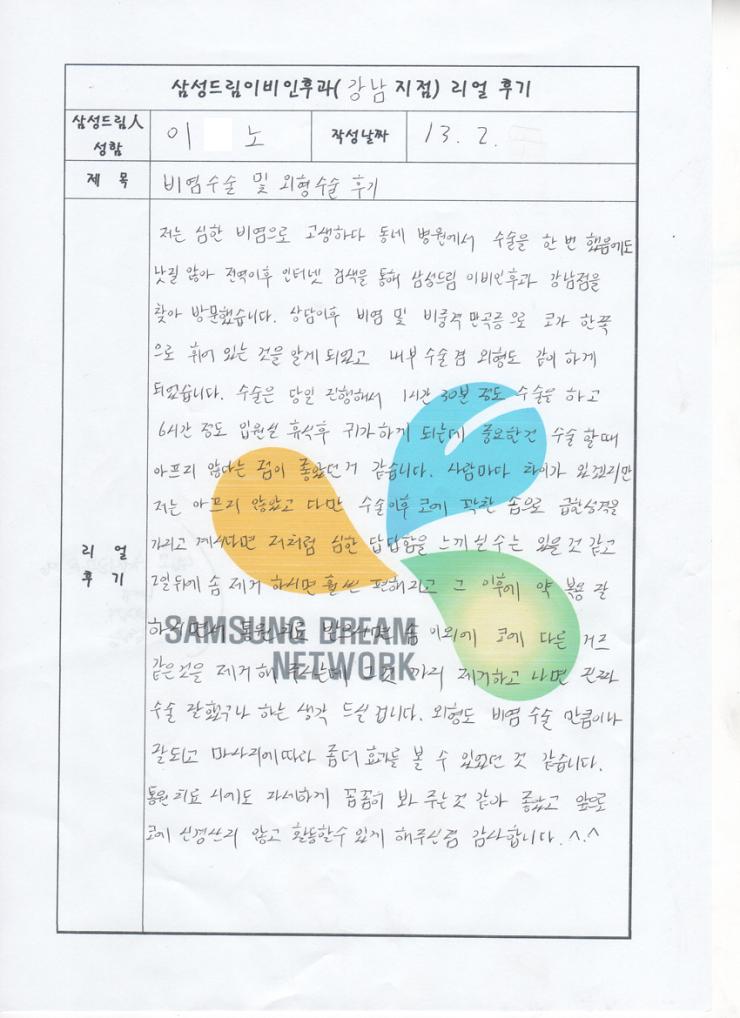 삼성드림이비인후과(강남지점) 리얼 후기
삼성드림人
성함
이 노
작성날짜
13. 2.
제 목
비염수술 및 외형수술 후기
리 얼
후 기
저는 심한 비염으로 고생하다 동네 병원에서 수술을 한 번 했음에도
낫질 않아 전역이후 인터넷 검색을 통해 삼성드림 이비인후과 강남점을
찾아 방문했습니다. 상담이후 비염 및 비중격 만곡증으로 코가 한쪽
으로 휘어 있는 것을 알게 되었고 내부 수술 겸 외형도 같이 하게
되었습니다. 수술은 당일 진행해서 1시간 30분 정도 수술을 하고
6시간 정도 입원실 휴식후 귀가하게 되는데 중요한건 수술 할때
아프지 않다는 점이 좋았던거 같습니다. 사람마다 차이가 있겠지만
저는 아프지 않았고 다만 수술이후 코에 꽉찬 솜으로 급한성격을
가지고 계시다면 저처럼 심한 답답함을 느끼실 수는 있을 것 같고
2일뒤에 솜 제거 하시면 훨씬 편해지고 그 이후에 약 복용 잘
통원 치료 솜 이외에 코에 다른 거즈
같은것을 제거해 주시는데 그것 까지 제거하고 나면 진짜
수술 잘했구나 하는 생각 드실 겁니다. 외형도 비염 수술 만큼이나
잘되고 마사지에따라 좀더 효과를 볼 수 있었던 것 같습니다.
통원치료 시에도 자세하게 꼼꼼히 봐 주는것 같아 좋았고 앞으로
코에 신경쓰지 않고 활동할수 있게 해주신점 감사합니다. ^.^
SAMSUNG DREAM
NETWORK